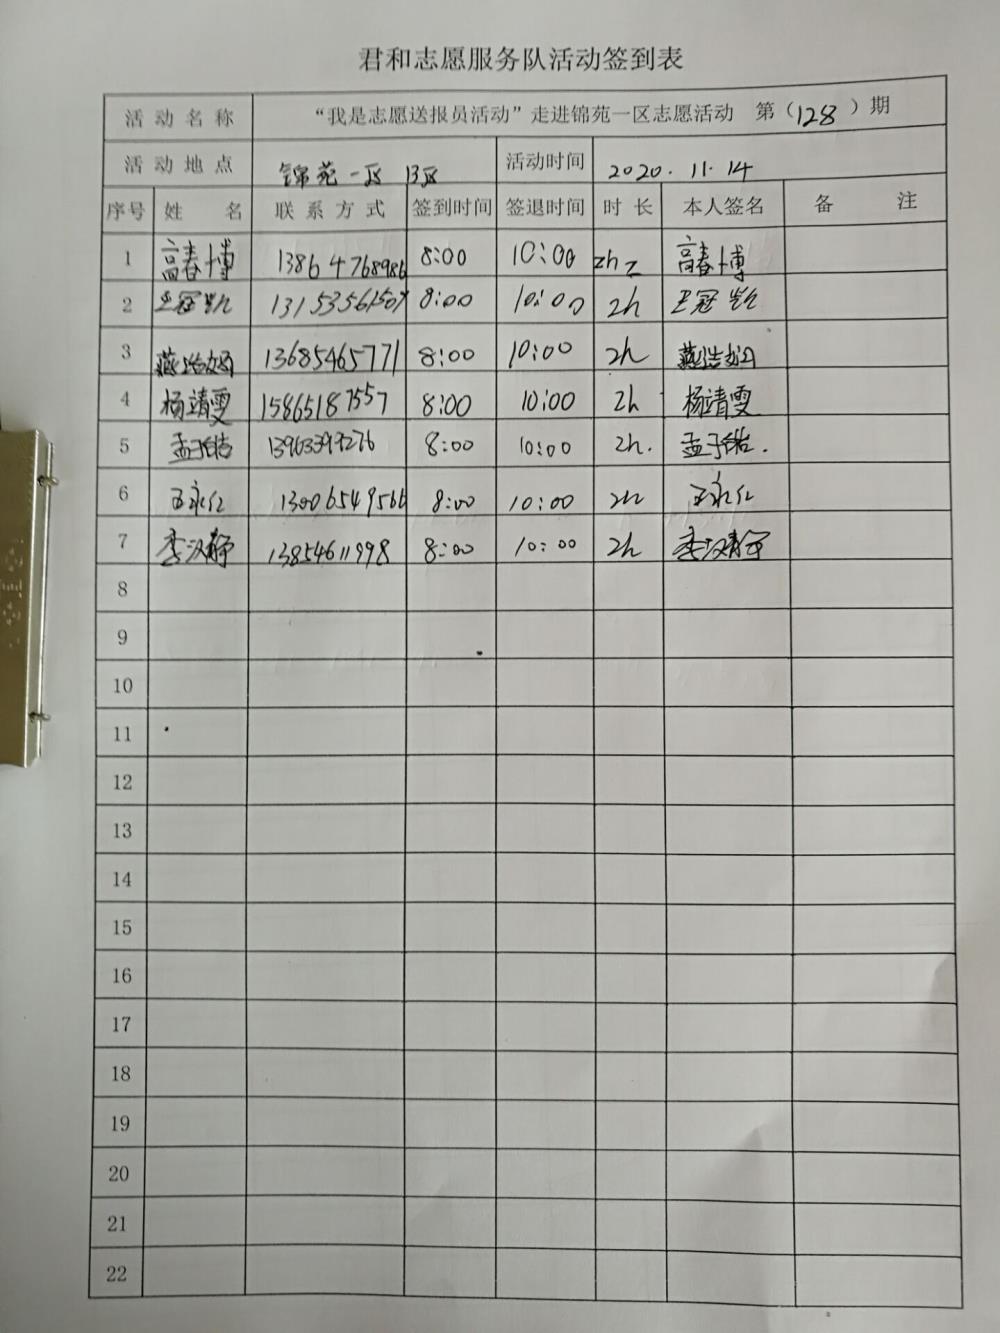 君和志愿服务队活动签到表
活动名称 “我是志愿送报员活动”走进锦苑一区志愿活动 第（128）期
活动地点 锦苑一区 13区 活动时间 2020.11.14
序号 姓名 联系方式 签到时间 签退时间 时长 本人签名 备注
1 高春博 13864768986 8:00 10:00 2h 高春博
2 王冠凯 13153561507 8:00 10:00 2h 王冠凯
3 13685465771 8:00 10:00 2h
4 杨靖雯 15865187557 8:00 10:00 2h 杨靖雯
5 孟子皓 8:00 10:00 2h. 孟子皓.
6 王永仁 13006549566 8:00 10:00 2h 王永仁
7 李汉静 13854611998 8:00 10:00 2h 李汉静
8
9
10
11
12
13
14
15
16
17
18
19
20
21
22